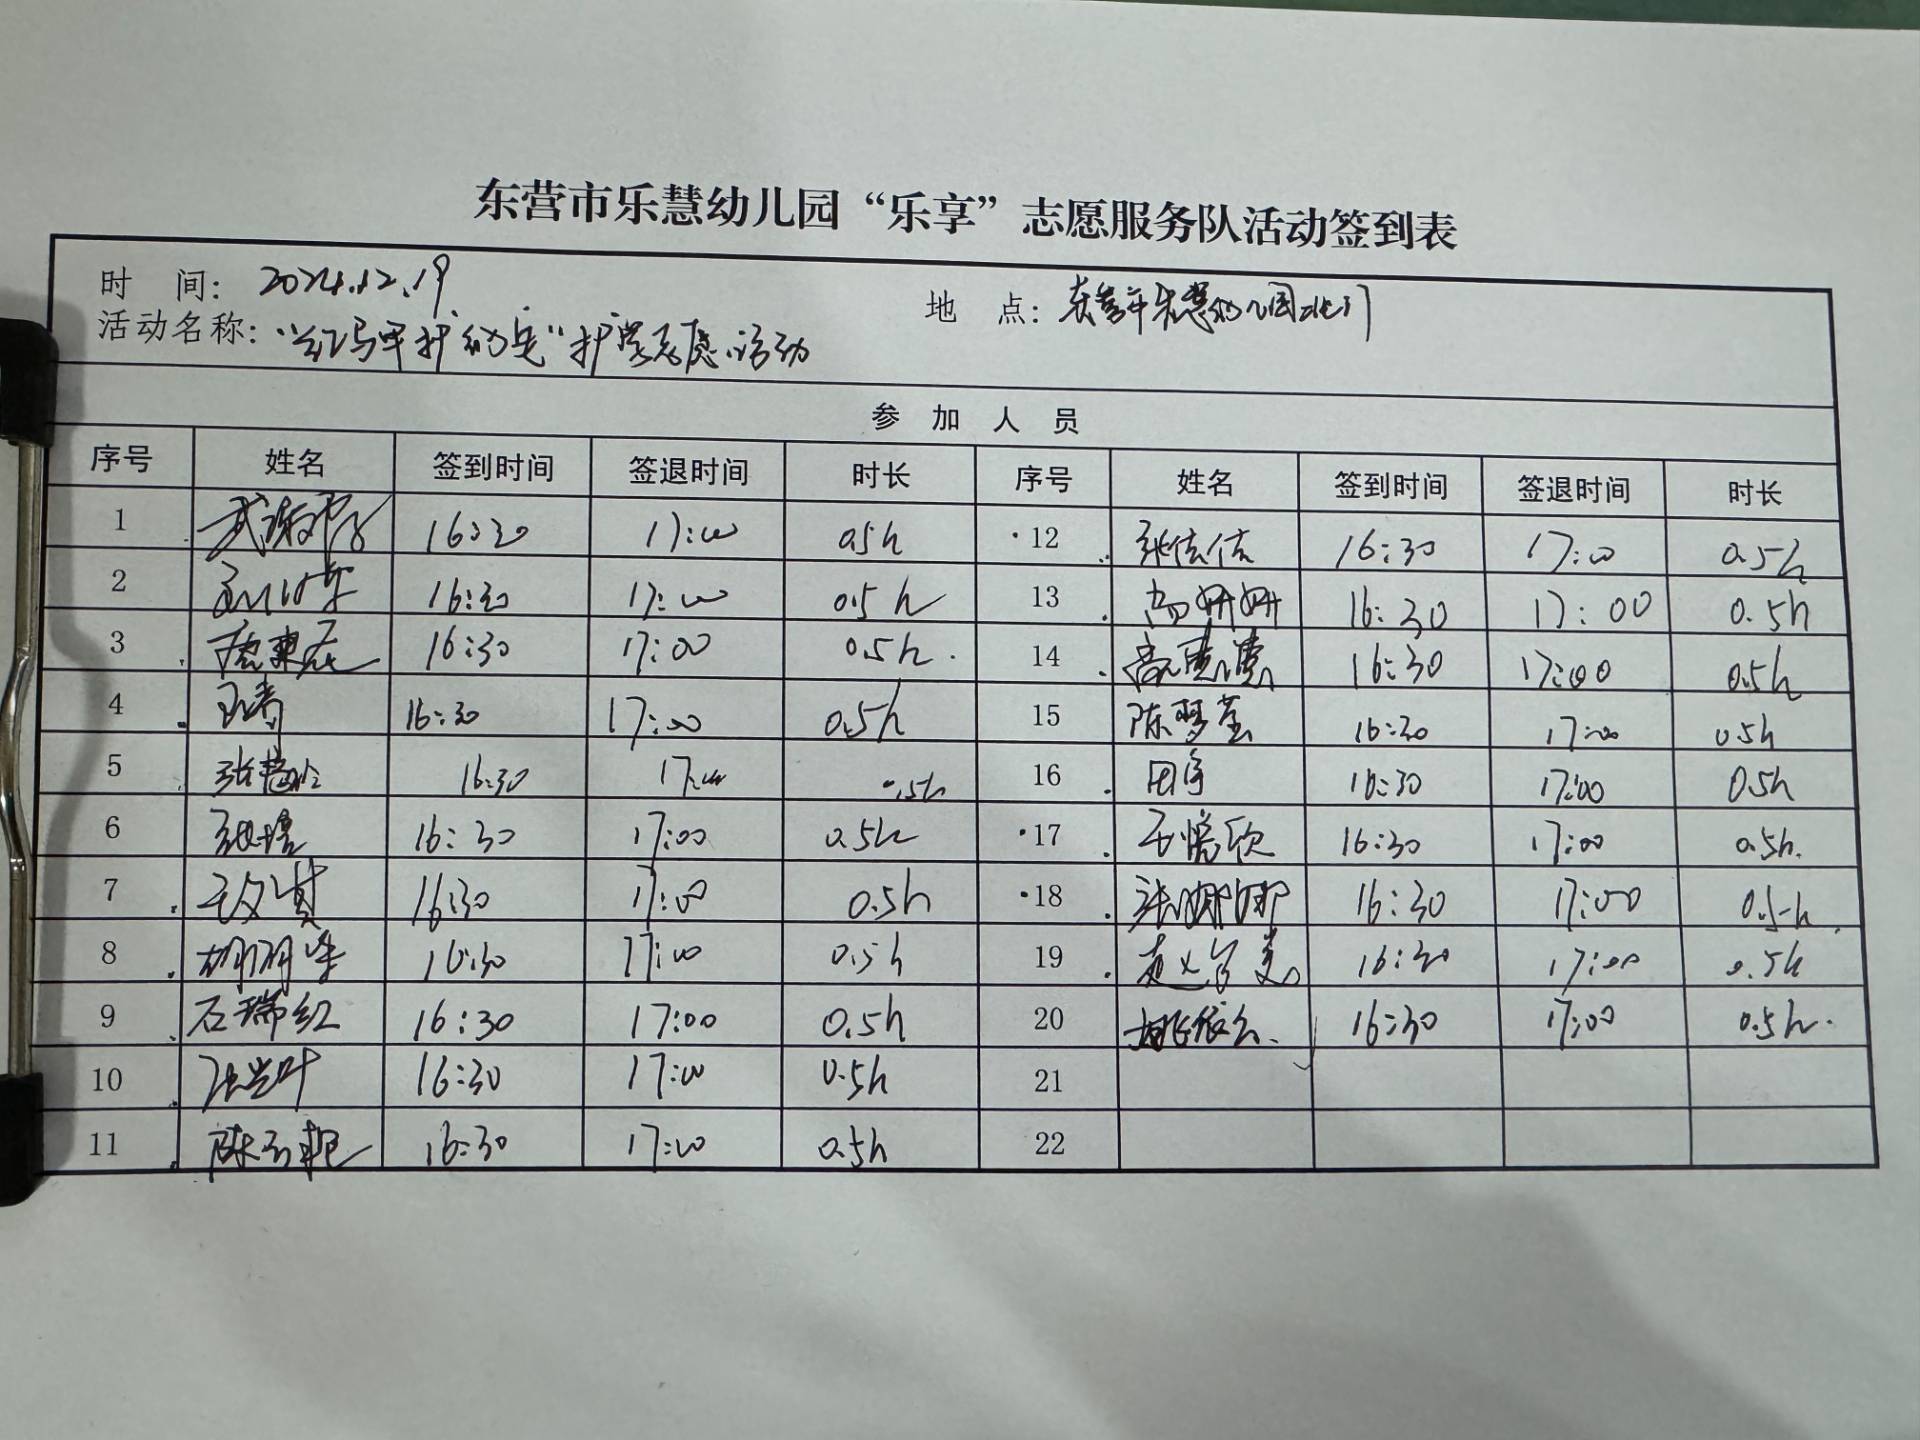 东营市乐慧幼儿园“乐享”志愿服务队活动签到表
时 间： 2024.12.19 地 点：东营市乐慧幼儿园北门
活动名称：“红马甲护幼兔”护学志愿活动
参 加 人 员
序号 姓名 签到时间 签退时间 时长 序号 姓名 签到时间 签退时间 时长
1 16:30 17:00 0.5h 12 张佳佳 16:30 17:00 0.5h
2 16:30 17:00 0.5h 13 尚妍妍 16:30 17:00 0.5h
3 16:30 17:00 0.5h 14 16:30 17:00 0.5h
4 16:30 17:00 0.5h 15 陈梦莹 16:30 17:00 0.5h
5 16:30 17:00 0.5h 16 田宇 16:30 17:00 0.5h
6 16:30 17:00 0.5h 17 16:30 17:00 0.5h
7 16:30 17:00 0.5h 18 张娜娜 16:30 17:00 0.5h
8 16:30 17:00 0.5h 19 16:30 17:00 0.5h
9 石瑞红 16:30 17:00 0.5h 20 16:30 17:00 0.5h
10 张兰叶 16:30 17:00 0.5h 21
11 16:30 17:00 0.5h 22